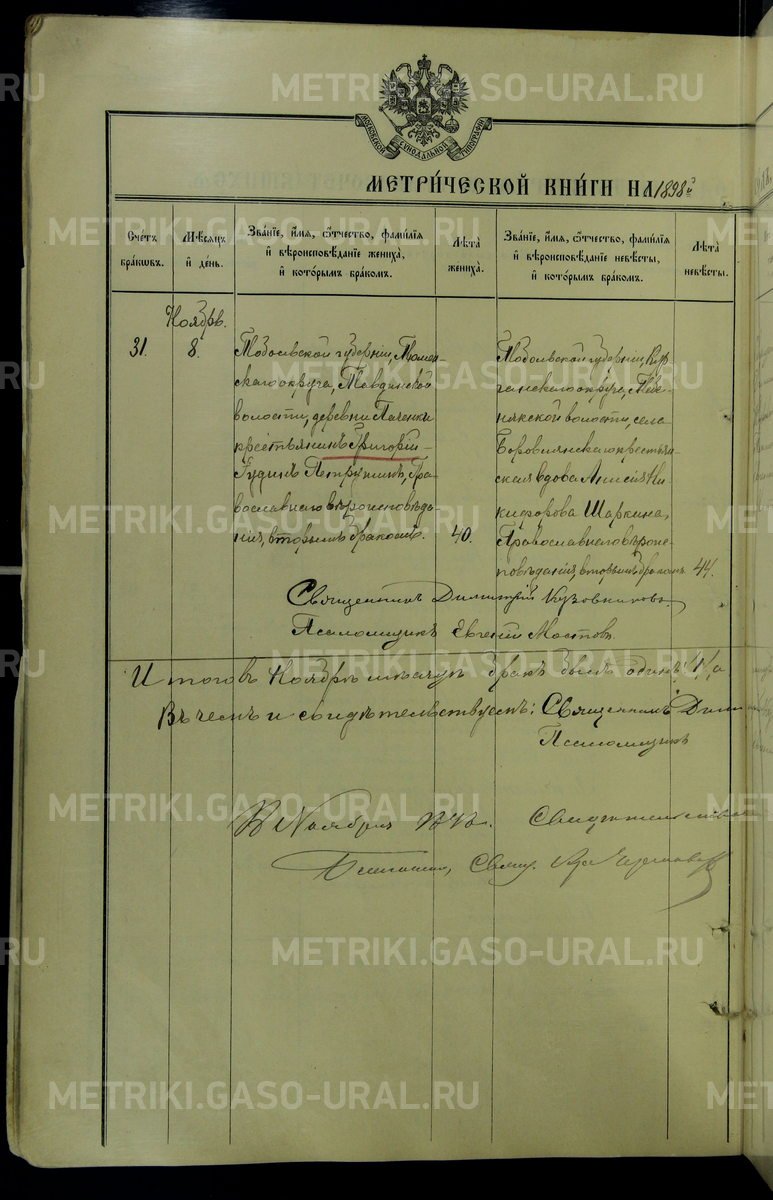 МОСКОВСКОЙ СУНОДАЛЬНОЙ ТИПОГРАФІИ
МЕТРИЧЕСКОЙ КНИГИ НА 1898й
Счетъ браковъ.
Мѣсяцъ и день.
Званіе, имя, отчество, фамилія
и вѣроисповѣданіе жениха,
и которымъ бракомъ.
Лѣта жениха.
Званіе, имя, отчество, фамилія
и вѣроисповѣданіе невѣсты,
и которымъ бракомъ.
Лѣта невѣсты.
Ноября.
31.
8.
Тобольской губерніи, Тюмен-
скаго округа, Тавдинской
волости, деревни Паченки
крестьянинъ Григорій
Петрушинъ, Пра-
вославнаго вѣроисповѣда-
нія, вторымъ бракомъ.
40.
Тобольской губерніи, Кур-
ганскаго округа,
волости, села
Боровлянскаго крестьян-
ская вдова Анисія Ни-
кифорова Шаркина,
Православнаго вѣроис-
повѣданія, вторымъ бракомъ.
44.
Священникъ Димитрій Кузовниковъ.
Псаломщикъ Евгеній Мостовъ.
Итого въ Ноябрѣ мѣсяцѣ бракъ былъ одинъ /1/
Въ чемъ и свидѣтельствуемъ: Священникъ Дим
Псаломщикъ
Ноября
METRIKI.GASO-URAL.RU